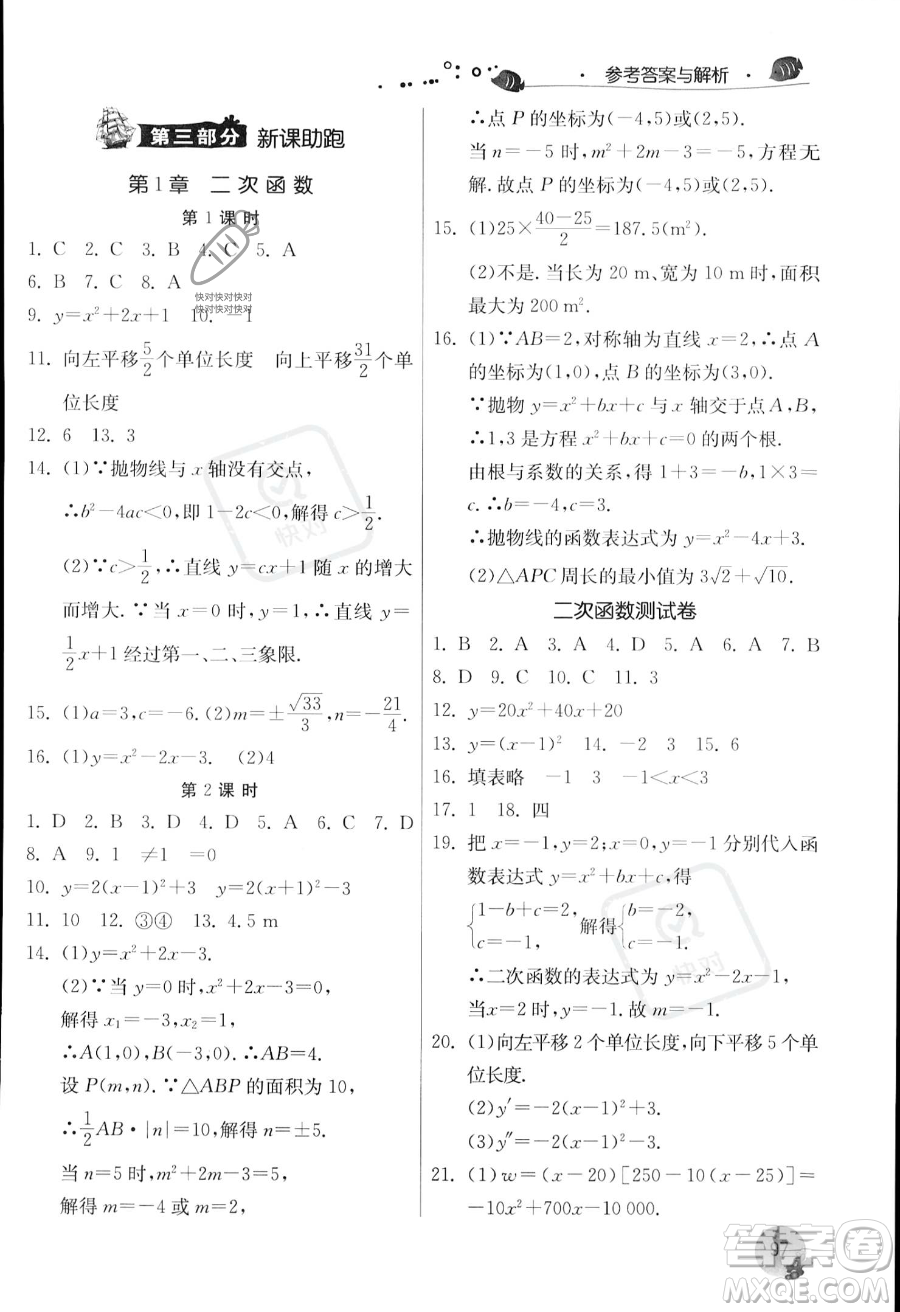 · 参考答案与解析 ·
第三部分 新课助跑
第1章 二次函数
第1课时
1. C 2. C 3. B 4. C 5. A
6. B 7. C 8. A
9. y=x²+2x+1 10. -1
11. 向左平移5/2个单位长度 向上平移31/2个单
位长度
12. 6 13. 3
14. (1)∵抛物线与 x 轴没有交点,
∴b²-4ac<0,即 1-2c<0,解得 c>1/2.
(2)∵c>1/2,∴直线 y=cx+1 随 x 的增大
而增大. ∵当 x=0 时,y=1,∴直线 y=
1/2x+1 经过第一、二、三象限.
15. (1)a=3,c=-6. (2)m=±√33/3,n=-21/4.
16. (1)y=x²-2x-3. (2)4
第2课时
1. D 2. B 3. D 4. D 5. A 6. C 7. D
8. A 9. 1 ≠1 =0
10. y=2(x-1)²+3 y=2(x-1)²-3
11. 10 12. ③④ 13. 4.5 m
14. (1)y=x²+2x-3.
(2)∵当 y=0 时,x²+2x-3=0,
解得 x₁=-3,x₂=1,
∴A(1,0),B(-3,0),∴AB=4.
设 P(m,n). ∵△ABP 的面积为 10,
∴1/2AB·|n|=10,解得 n=±5.
当 n=5 时,m²+2m-3=5,
解得 m=-4 或 m=2,
∴点 P 的坐标为(-4,5)或(2,5).
当 n=-5 时,m²+2m-3=-5,方程无
解. 故点 P 的坐标为(-4,5)或(2,5).
15. (1)25×(40-25)/2=187.5(m²).
(2)不是. 当长为 20 m、宽为 10 m 时,面积
最大为 200 m².
16. (1)∵AB=2,对称轴为直线 x=2,∴点 A
的坐标为(1,0),点 B 的坐标为(3,0).
∵抛物 y=x²+bx+c 与 x 轴交于点A,B,
∴1,3 是方程 x²+bx+c=0 的两个根.
由根与系数的关系,得 1+3=-b,1×3=
c. ∴b=-4,c=3.
∴抛物线的函数表达式为 y=x²-4x+3.
(2)△APC 周长的最小值为 3√2+√10.
二次函数测试卷
1. B 2. A 3. A 4. D 5. A 6. A 7. B
8. D 9. C 10. C 11. 3
12. y=20x²+40x+20
13. y=(x-1)² 14. -2 3 15. 6
16. 填表略 -1 3 -1<x<3
17. 1 18. 四
19. 把 x=-1,y=2;x=0,y=-1 分别代入函
数表达式 y=x²+bx+c,得
{1-b+c=2, c=-1, 解得{b=-2, c=-1.
∴二次函数的表达式为 y=x²-2x-1,
当x=2 时,y=m=-1. 故 m=-1.
20. (1)向左平移 2 个单位长度,向下平移 5 个单
位长度.
(2)y′=-2(x-1)²+3.
(3)y″=-2(x-1)²-3.
21. (1)w=(x-20)[250-10(x-25)]=
-10x²+700x-10 000.
97
快对快对快对
快对快对快对
快对
快对
答案圈
MXQE.COM